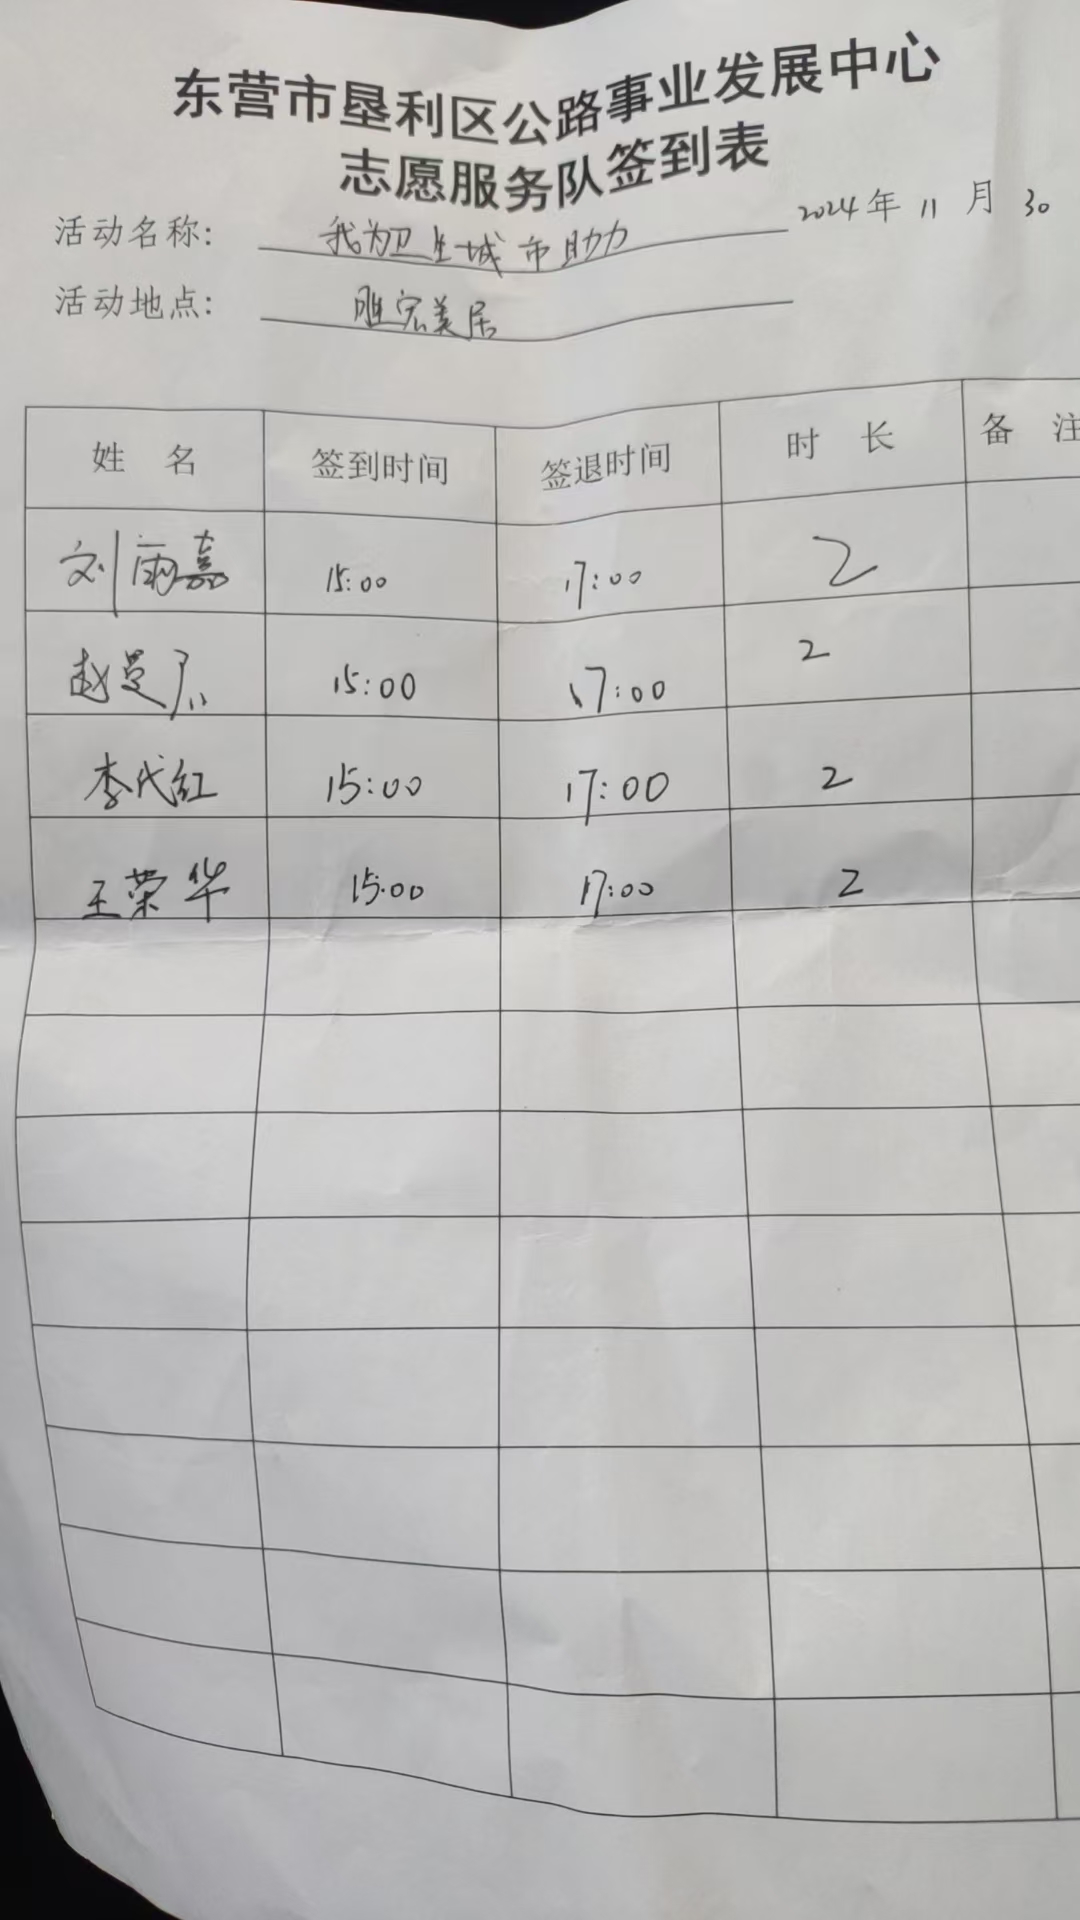 东营市垦利区公路事业发展中心
志愿服务队签到表
2024年 11 月 30
活动名称: 我为卫生城市助力
活动地点: 胜宏美居
姓 名 签到时间 签退时间 时 长 备 注
刘雨嘉 15:00 17:00 2
赵 15:00 17:00 2
李代红 15:00 17:00 2
王荣华 15:00 17:00 2